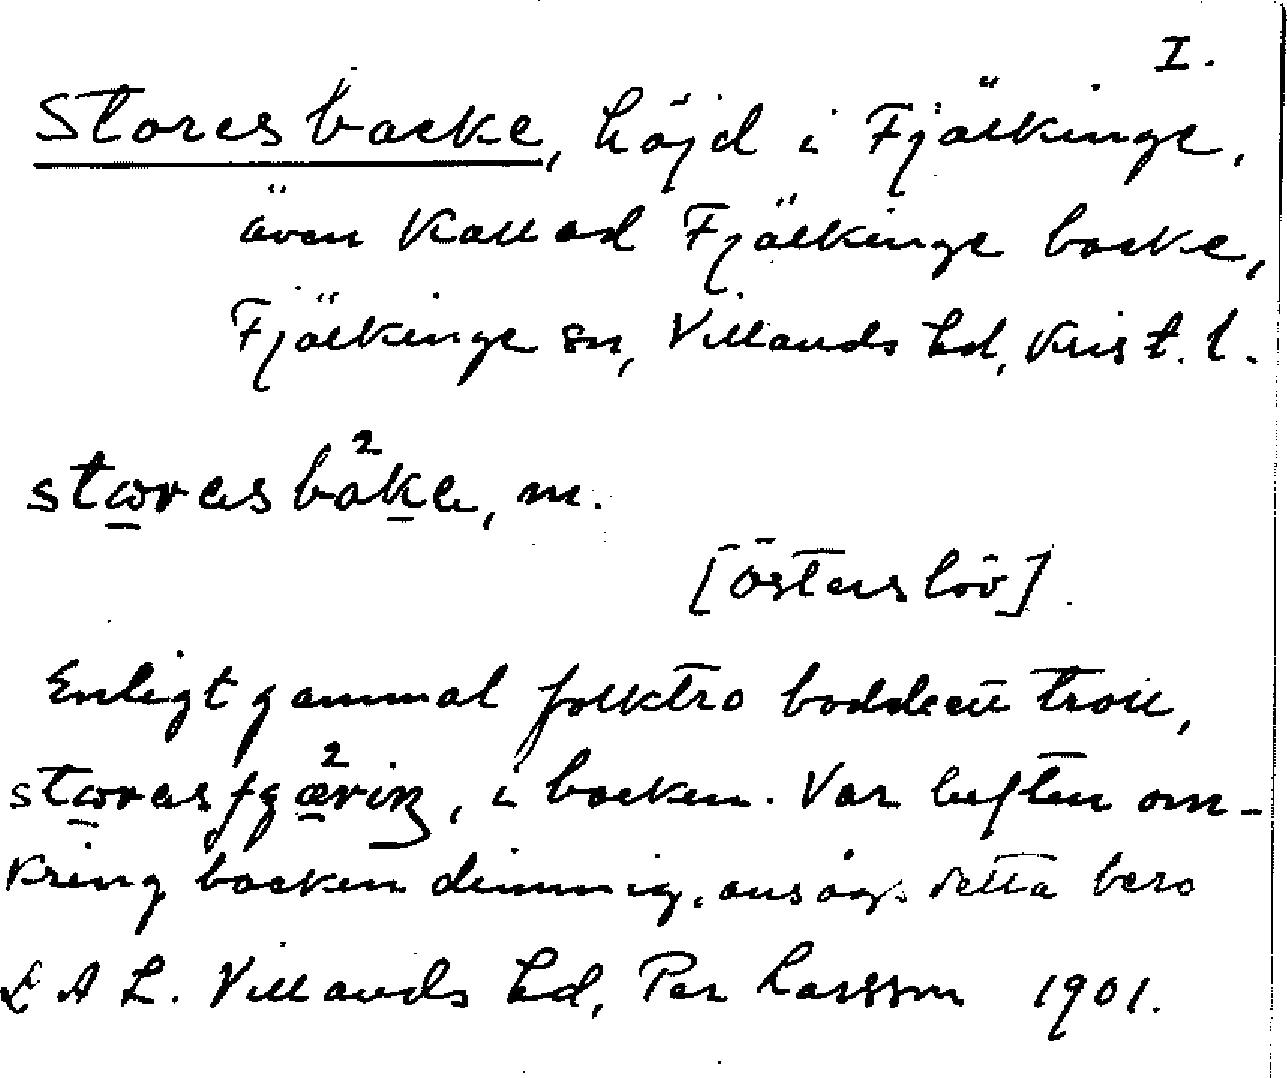 I.
Stores backe, höjd i Fjälkinge,
även kallad Fjälkinge backe,
Fjälkinge sn, Villands hd, Krist. l.
[Österslöv]
Enligt gammal folktro bodde ett troll,
i backen. Var luften om-
kring backen dimmig, ansågs detta bero
L A L. Villands hd, Per Larsson 1901.